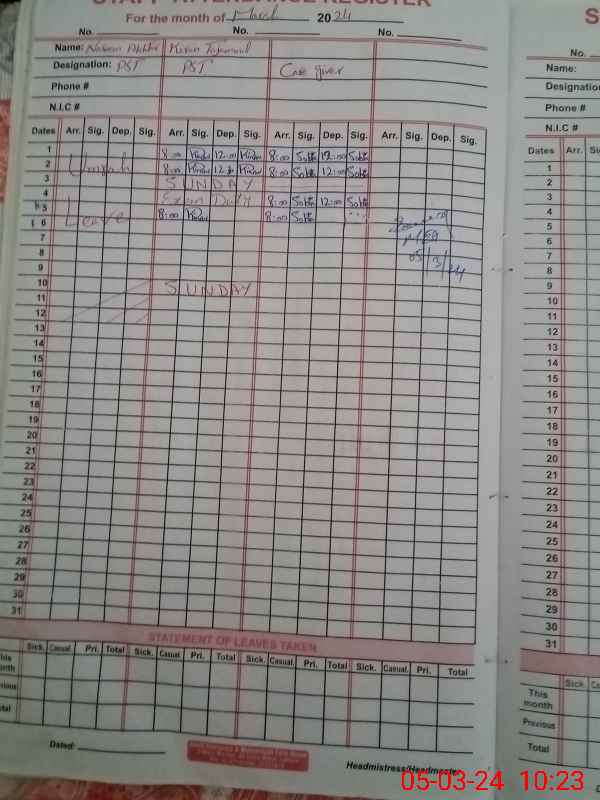 STAFF ATTENDANCE REGISTER
For the month of March 2024
No. No. No.
Name: Kiran
Designation: PST PST Care giver
Phone #
N.I.C #
Dates Arr. Sig. Dep. Sig. Arr. Sig. Dep. Sig. Arr. Sig. Dep. Sig. Arr. Sig. Dep. Sig.
1 8:00 Kiran 12:00 Kiran 8:00 12:00
2 Umrah 8:00 Kiran 12:30 Kiran 8:00 12:00
3 SUNDAY
4 Exam Duty 8:00 12:00
5 Leave 8:00 Kiran 8:00
6
7
8 05/3/24
9
10 SUNDAY
11
12
13
14
15
16
17
18
19
20
21
22
23
24
25
26
27
28
29
30
31
STATEMENT OF LEAVES TAKEN
Sick. Casual. Pri. Total Sick. Casual. Pri. Total Sick. Casual. Pri. Total Sick. Casual. Pri. Total
This month
Previous
Total
Dated:
Headmistress/Headmaster
S
No.
Name:
Designation
Phone #
N.I.C #
Dates Arr. Sig.
1
2
3
4
5
6
7
8
9
10
11
12
13
14
15
16
17
18
19
20
21
22
23
24
25
26
27
28
29
30
31
Sick. Cas
This month
Previous
Total
05-03-24 10:23